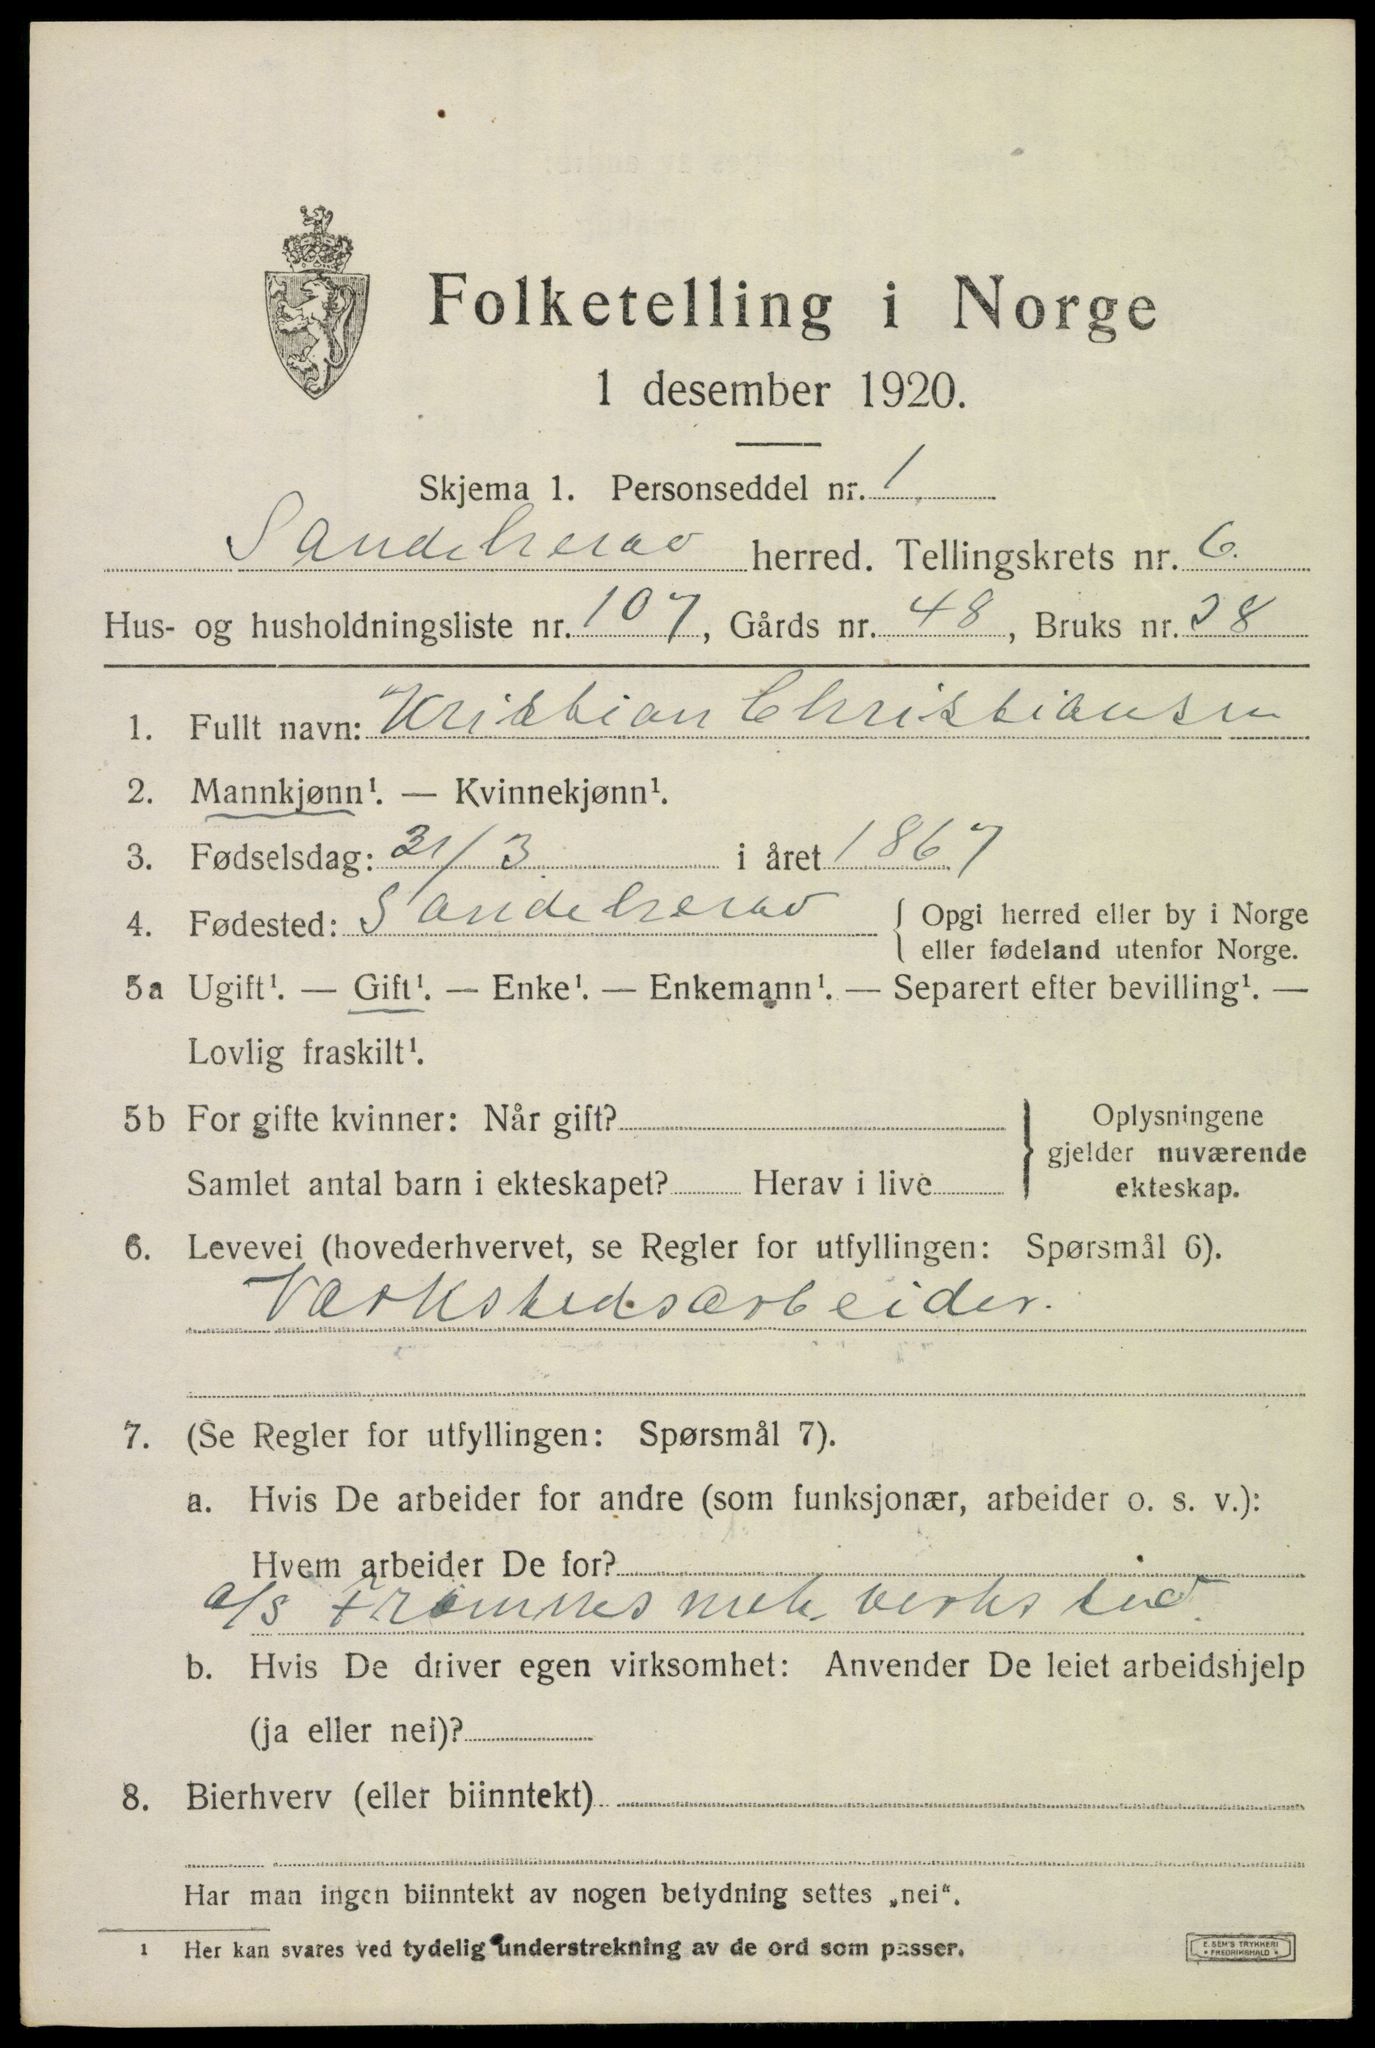 Folketelling i Norge
1 desember 1920.
Skjema 1. Personseddel nr. 1
Sandeherad herred. Tellingskrets nr. 6.
Hus- og husholdningsliste nr. 107, Gårds nr. 48, Bruks nr. 28
1. Fullt navn: Kristian Christiansen
2. Mannkjønn¹. — Kvinnekjønn¹.
3. Fødselsdag: 21/3 i året 1867
4. Fødested: Sandeherad { Opgi herred eller by i Norge
eller fødeland utenfor Norge.
5a Ugift¹. — Gift¹. — Enke¹. — Enkemann¹. — Separert efter bevilling¹. —
Lovlig fraskilt¹.
5b For gifte kvinner: Når gift? } Oplysningene
gjelder nuværende
Samlet antal barn i ekteskapet? Herav i live ekteskap.
6. Levevei (hovederhvervet, se Regler for utfyllingen: Spørsmål 6).
Værkstedsarbeider.
7. (Se Regler for utfyllingen: Spørsmål 7).
a. Hvis De arbeider for andre (som funksjonær, arbeider o. s. v.):
Hvem arbeider De for?
a/s Framnes mek. verksted
b. Hvis De driver egen virksomhet: Anvender De leiet arbeidshjelp
(ja eller nei)?
8. Bierhverv (eller biinntekt)
Har man ingen biinntekt av nogen betydning settes „nei“.
¹ Her kan svares ved tydelig understrekning av de ord som passer.
E. SEM'S TRYKKERI
• FREDRIKSHALD •